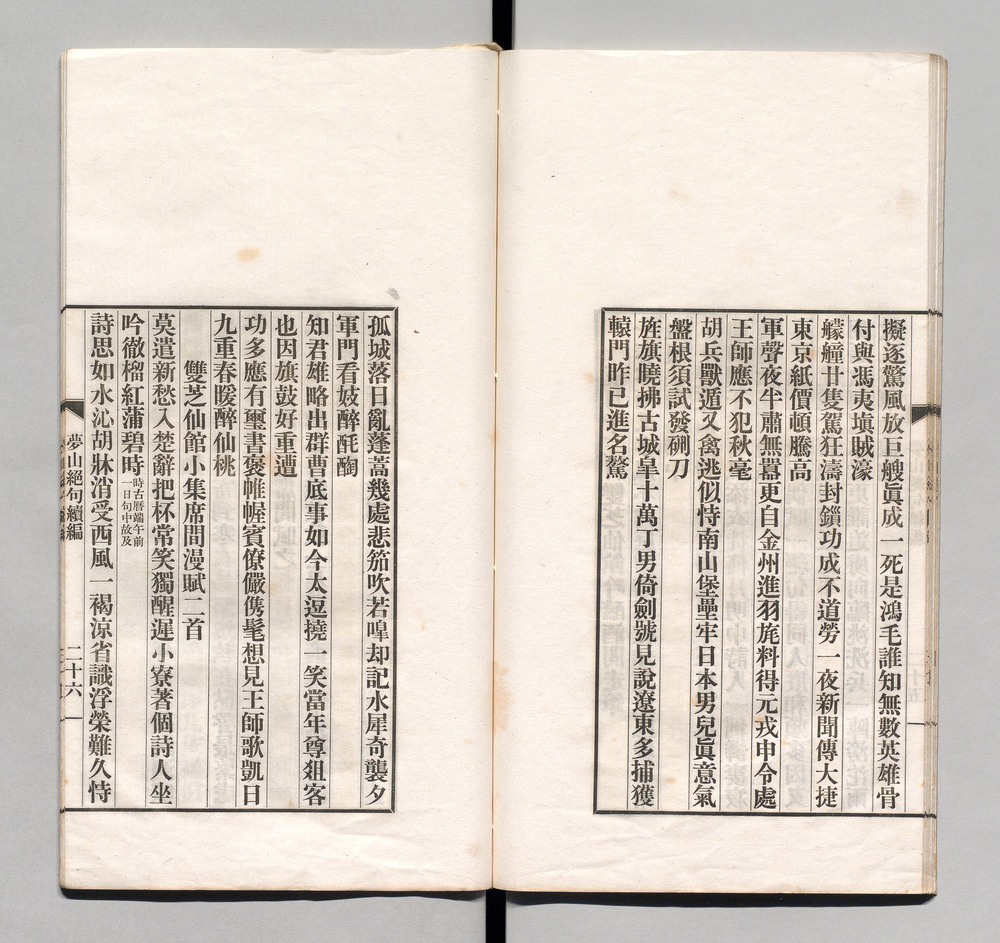 擬逐驚風放巨艘眞成一死是鴻毛誰知無數英雄骨
付與馮夷塡賊濠
艨艟廿隻駕狂濤封鎖功成不道勞一夜新聞傳大捷
東京紙價頓騰高
軍聲夜半肅無囂更自金州進羽旄料得元戎申令處
王師應不犯秋毫
胡兵獸遁又禽逃似恃南山堡壘牢日本男兒眞意氣
盤根須試發硎刀
旌旗曉拂古城皐十萬丁男倚劍號見說遼東多捕獲
轅門昨已進名驁
孤城落日亂蓬蒿幾處悲笳吹若嘷却記水犀奇襲夕
軍門看妓醉酕醄
知君雄略出群曹底事如今太逗撓一笑當年尊爼客
也因旗鼓好重遭
功多應有璽書褒帷幄賓僚儼儁髦想見王師歌凱日
九重春暖醉仙桃
雙芝仙館小集席間漫賦二首
莫遣新愁入楚辭把杯常笑獨醒遲小寮著個詩人坐
吟徹榴紅蒲碧時時古曆端午前一日句中故及
詩思如水沁胡牀消受西風一褐涼省識浮榮難久恃
夢山絕句續編
二十六